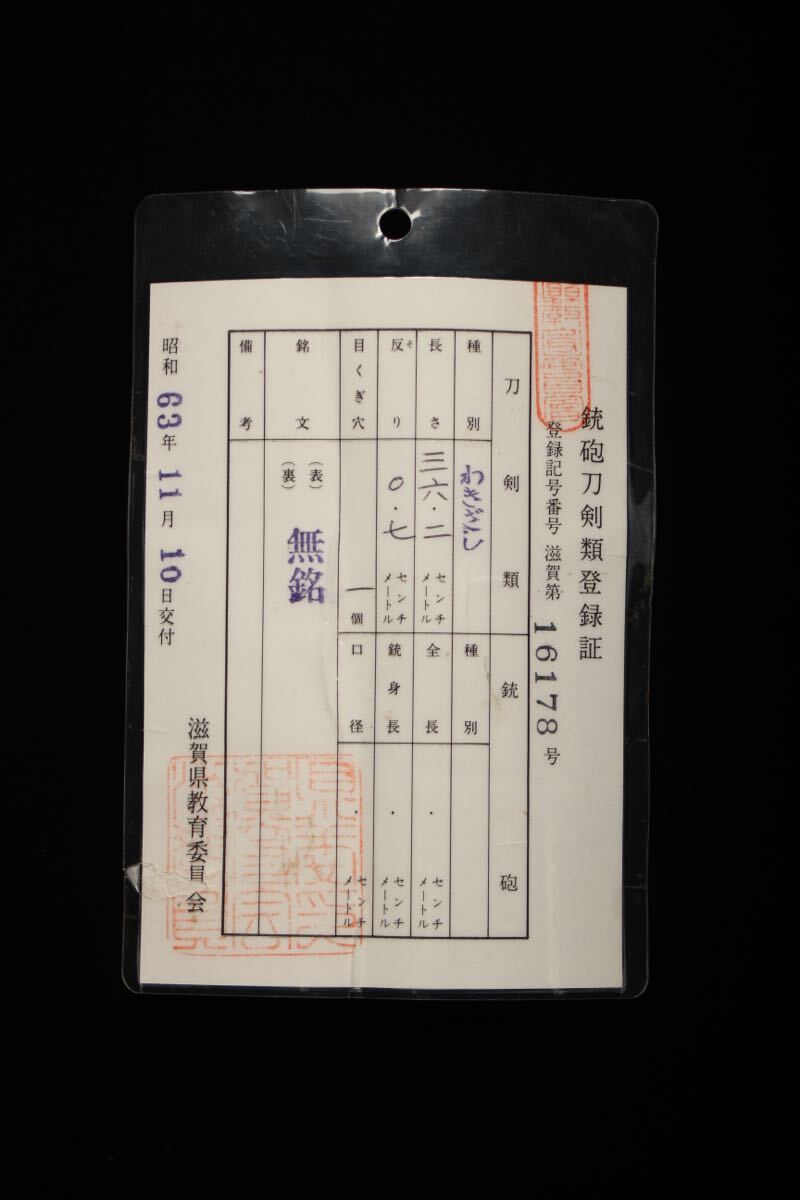 銃砲刀剣類登録証
登録記号番号 滋賀第 16178 号
刀剣類
種別 わきざし
長さ 三六・二 センチメートル
反り そ 〇・七 センチメートル
目くぎ穴 一 個
銘文 (表) (裏) 無銘
備考
銃砲
種別
全長 ・ センチメートル
銃身長 ・ センチメートル
口径 ・ センチメートル
昭和 63 年 11 月 10 日交付
滋賀県教育委員会